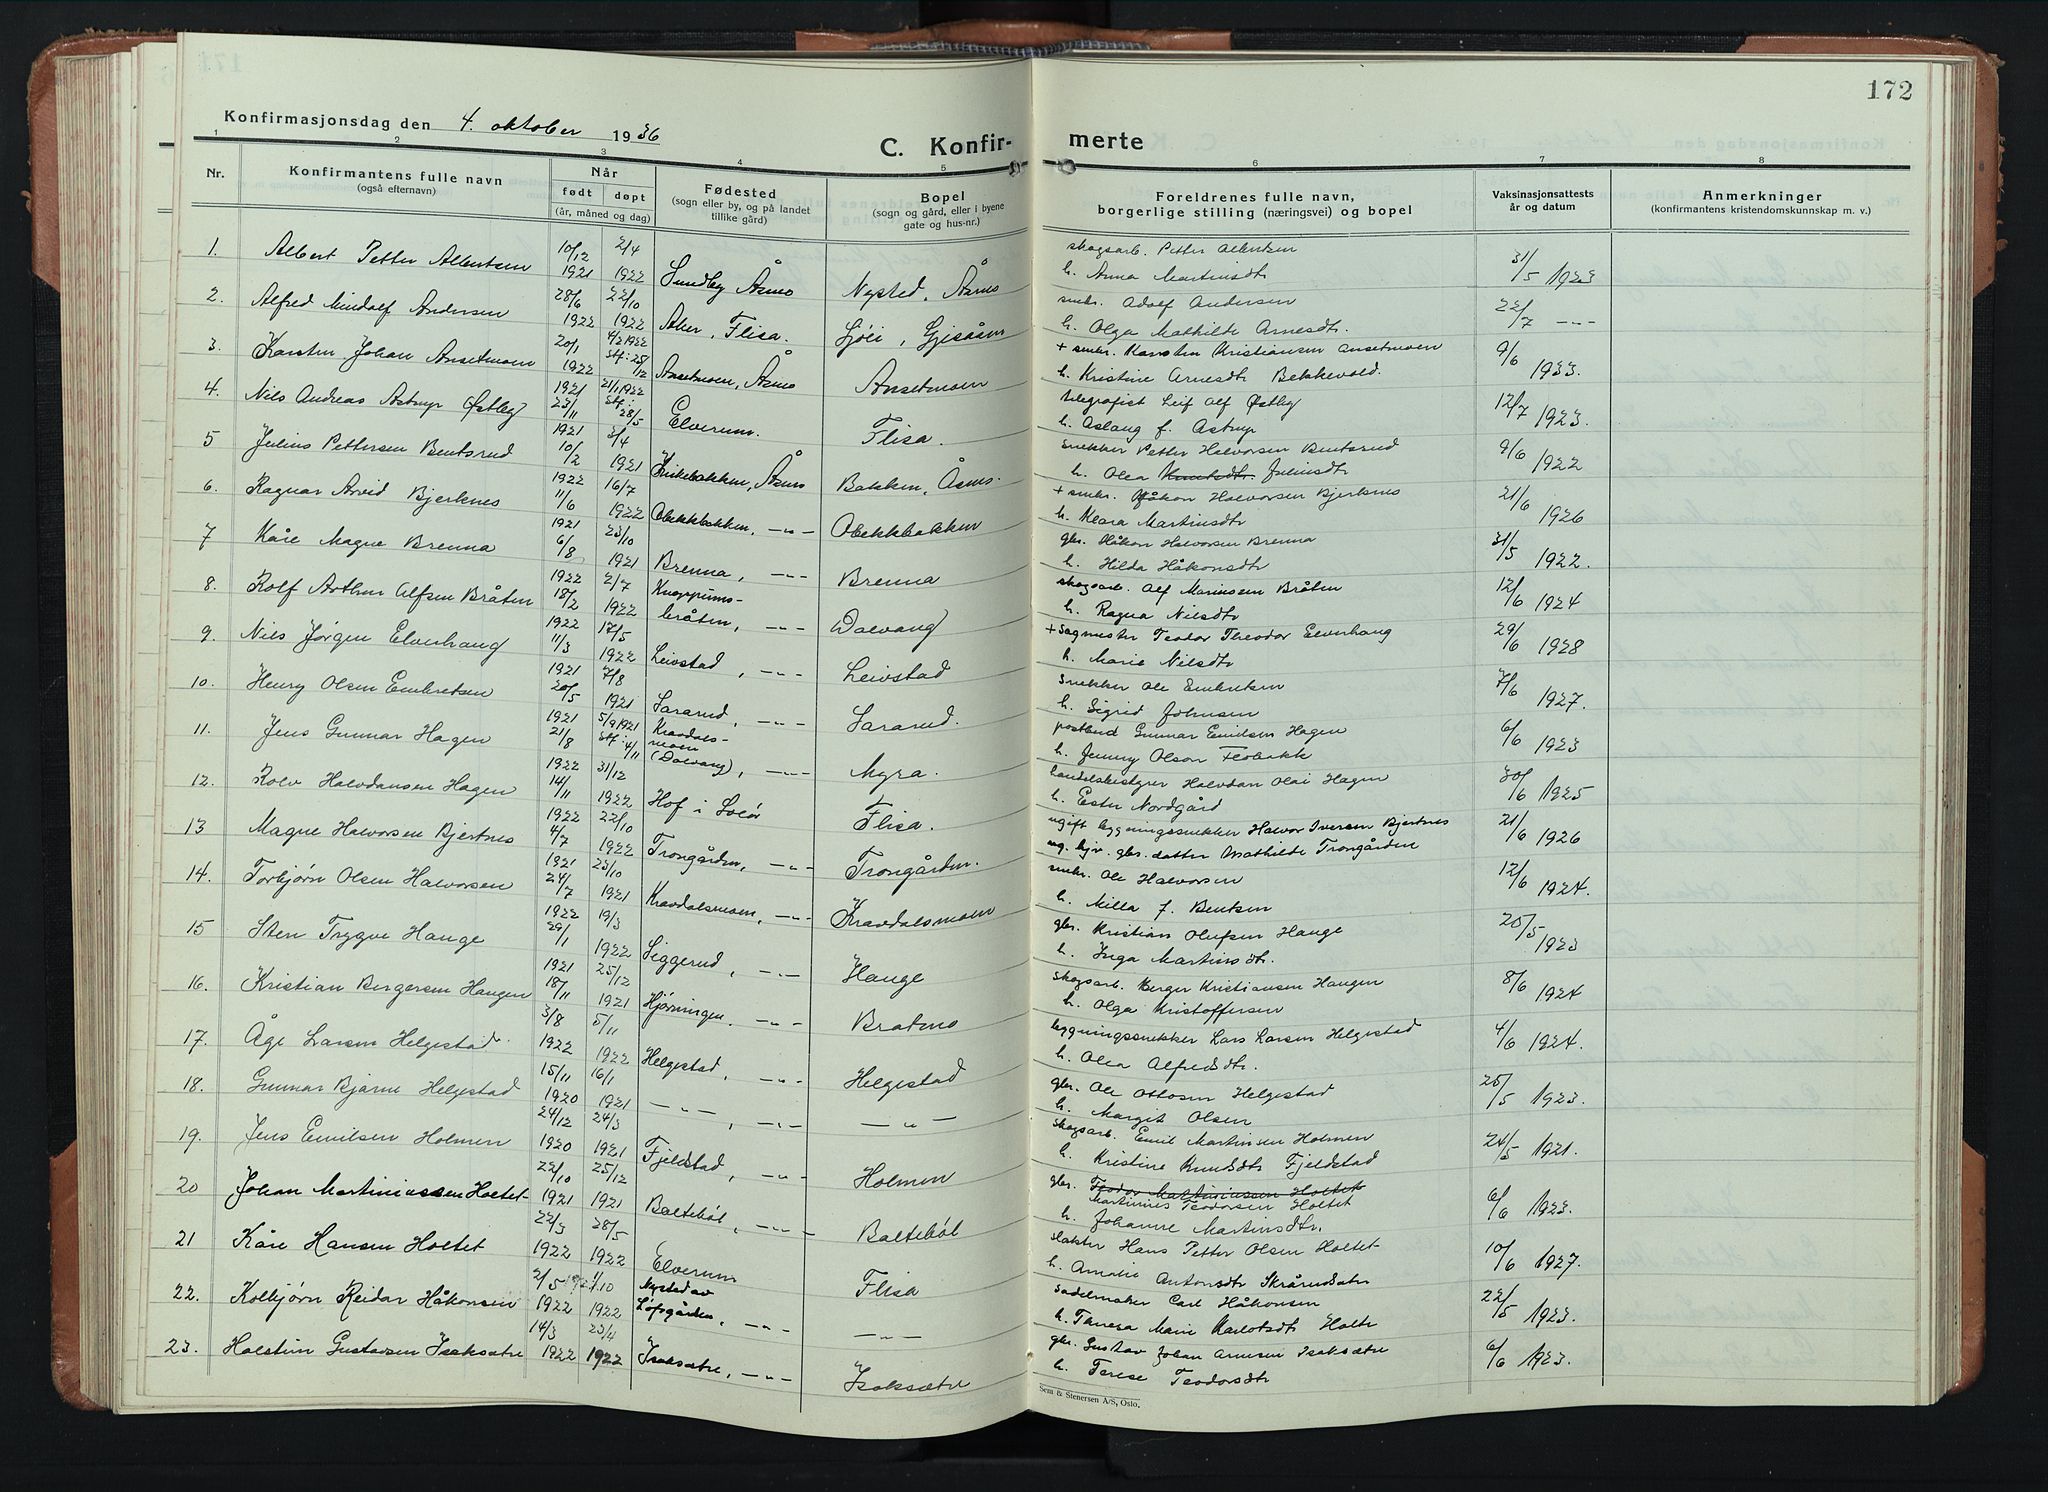 172
Konfirmasjonsdag den 4. oktober 1936
C. Konfir- merte
1 2 3 4 5 6 7 8
Nr. Konfirmantens fulle navn (også efternavn) Når født døpt (år, måned og dag) Fødested (sogn eller by, og på landet tillike gård) Bopel (sogn og gård, eller i byene gate og hus-nr.) Foreldrenes fulle navn, borgerlige stilling (næringsvei) og bopel Vaksinasjonsattests år og datum Anmerkninger (konfirmantens kristendomskunnskap m. v.)
1. Albert Petter Albertsen 10/12 1921 2/4 1922 Sundby Åsmo Nysted, Åsmo skogsarb. Petter Albertsen h. Anna Martinsdtr 31/5 1923
2. Alfred Mindolf Andersen 28/6 1922 22/10 1922 Aker, Flisa. Sjøli, Gjesåsen smbr. Adolf Andersen h. Olga Mathilde Arnesdtr. 22/7 -"-
3. Karsten Johan Ansetmoen 20/1 1922 4/2 1922 Stf: 25/12 Ansetmoen, Åsmo Ansetmoen + smbr. Karsten Kristiansen Ansetmoen h. Kristine Arnesdtr Bekkevold. 9/6 1933.
4. Nils Andreas Astrup Østby 1921 23/11 21/1 1922 Stf: 28/5 Elverum. Flisa. telegrafist Leif Alf Østby h. Aslaug f. Astrup 12/7 1923.
5 Julius Pettersen Bentsrud 1921 10/2 3/4 1921 Kirkebakken, Åsnes Bakken, Åsnes. snekker Petter Halvorsen Bentsrud h. Olea Knutsdtr. Juliusdtr 9/6 1922
6. Ragnar Arvid Bjerknes 1922 11/6 16/7 1922 Obekkbakken, -"- Obekkbakken + smbr. Håkon Halvorsen Bjerknes h. Klara Martinsdtr 21/6 1926
7 Kåre Magne Brenna 1921 6/8 23/10 1921 Brenna, -"- Brenna gbr. Håkon Halvorsen Brenna h. Hilda Håkonsdtr 31/5 1922.
8. Rolf Arthur Alfsen Bråten 1922 18/2 2/7 1922 Knappumsbråten, -"- Dalvang skogsarb. Alf Marinsen Bråten h. Ragna Nilsdtr 12/6 1924
9. Nils Jørgen Elverhaug 1922 11/3 17/5 1922 Leivstad, -"- Leivstad + sagmester Teodor Theodor Elverhaug h. Marie Nilsdtr 29/6 1928
10. Henry Olsen Embretsen 1921 20/5 7/8 1921 Sararud, -"- Sararud. snekker Ole Embretsen h. Sigrid Johnsen 7/6 1927.
11. Jens Gunnar Hagen 1921 21/8 5/9 1921 Stf: 4/11 Kravdalsmoen (Dalvang), -"- Myra. postbud Gunnar Emilsen Hagen h. Jenny Olson Flobakk 6/6 1923
12. Rolv Halvdansen Hagen 1922 14/11 31/12 1922 Hof i Solør Flisa. handelsbestyrer Halvdan Olai Hagen h. Ester Nordgård 30/6 1925
13 Magne Halvorsen Bjertnes 1922 4/7 22/10 1922 Trongården, -"- Trongården. ugift bygningssnekker Halvor Iversen Bjertnes ug. hjv. gbr. datter Mathilde Trongården 21/6 1926
14. Torbjørn Olsen Halvorsen 1921 24/7 23/10 1921 Kravdalsmoen, -"- Kravdalsmoen smbr. Ole Halvorsen h. Milla f. Bentsen 12/6 1924.
15 Sten Trygve Hauge 1922 29/1 19/3 1922 Siggerud, -"- Hauge gbr. Kristian Olufsen Hauge h. Inga Martinsdtr. 20/5 1923
16. Kristian Bergersen Haugen 1921 18/11 25/12 1921 Hjørningen, -"- Bratmo skogsarb. Berger Kristiansen Haugen h. Olga Kristoffersen 8/6 1924
17. Åge Larsen Helgestad 3/8 1922 5/11 1922 Helgestad, -"- Helgestad bygningssnekker Lars Larsen Helgestad h. Olea Alfredsdtr. 4/6 1924.
18. Gunnar Bjarne Helgestad 15/11 1920 16/1 1921 -"-, -"- -"- gbr. Ole Ottosen Helgestad h. Margit Olsen 25/5 1923.
19. Jens Emilsen Holmen 24/12 1920 24/3 1921 Fjeldstad, -"- Holmen skogsarb. Emil Martinsen Holmen h. Kristine Knudsdtr Fjeldstad 24/5 1921.
20 Johan Martiniussen Holtet 22/10 1921 25/12 1921 Baltebøl, -"- Baltebøl gbr. Teodor Martiniussen Holtet Martinius Teodorsen Holtet h. Johanne Martinsdtr. 6/6 1923.
21 Kåre Hansen Holtet 22/3 1922 28/5 1922 Elverum Flisa slakter Hans Petter Olsen Holtet h. Amalie Antonsdtr Skårudsæter 10/6 1927.
22. Kolbjørn Reidar Håkonsen 2/5 1922 1/10 1922 Nysted av Løfsgården, -"- -"- sadelmaker Carl Håkonsen h. Teresa Marie Karlotsdtr Holte 22/5 1923.
23. Holstein Gustavsen Isaksætre 14/3 1922 23/4 1922 Isaksætre, -"- Isaksætre gbr. Gustav Johan Arnesen Isaksætre h. Terese Teodorsdtr 6/6 1923.
Sem & Stenersen A/S, Oslo.